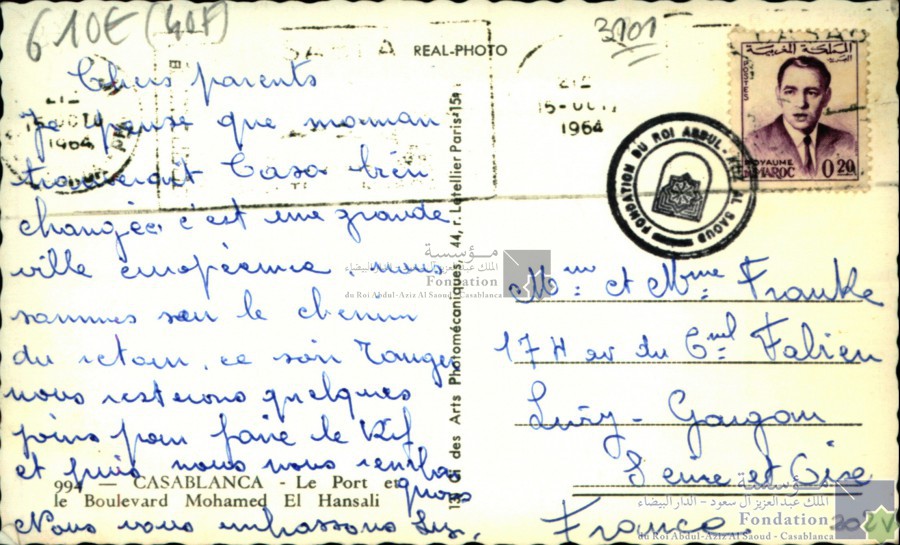 610E (40F)
3101
REAL-PHOTO
Chers parents
Je pense que maman
trouverait Casa bien
changée, c'est une grande
ville européenne nous
sommes sur le chemin
du retour, ce soir Tanger
nous resterons quelques
jours pour faire le Rif
et puis nous nous
Nous vous embrassons
994 — CASABLANCA - Le Port et
le Boulevard Mohamed El Hansali
des Arts Photomécaniques, 44, r. Letellier Paris-15e
15-OCT
1964
21
15-OCT
1964
المملكة المغربية
POSTES
ROYAUME
DU MAROC
0.20
FONDATION DU ROI ABDUL-AZIZ AL SAOUD
Mr et Mme Franke
17 H av du Cnel Fabien
Livry-Gargan
Seine et Oise
France.
مؤسسة
الملك عبدالعزيز آل سعود - الدار البيضاء
Fondation
du Roi Abdul-Aziz Al Saoud - Casablanca
مؤسسة
الملك عبدالعزيز آل سعود - الدار البيضاء
Fondation
du Roi Abdul-Aziz Al Saoud - Casablanca